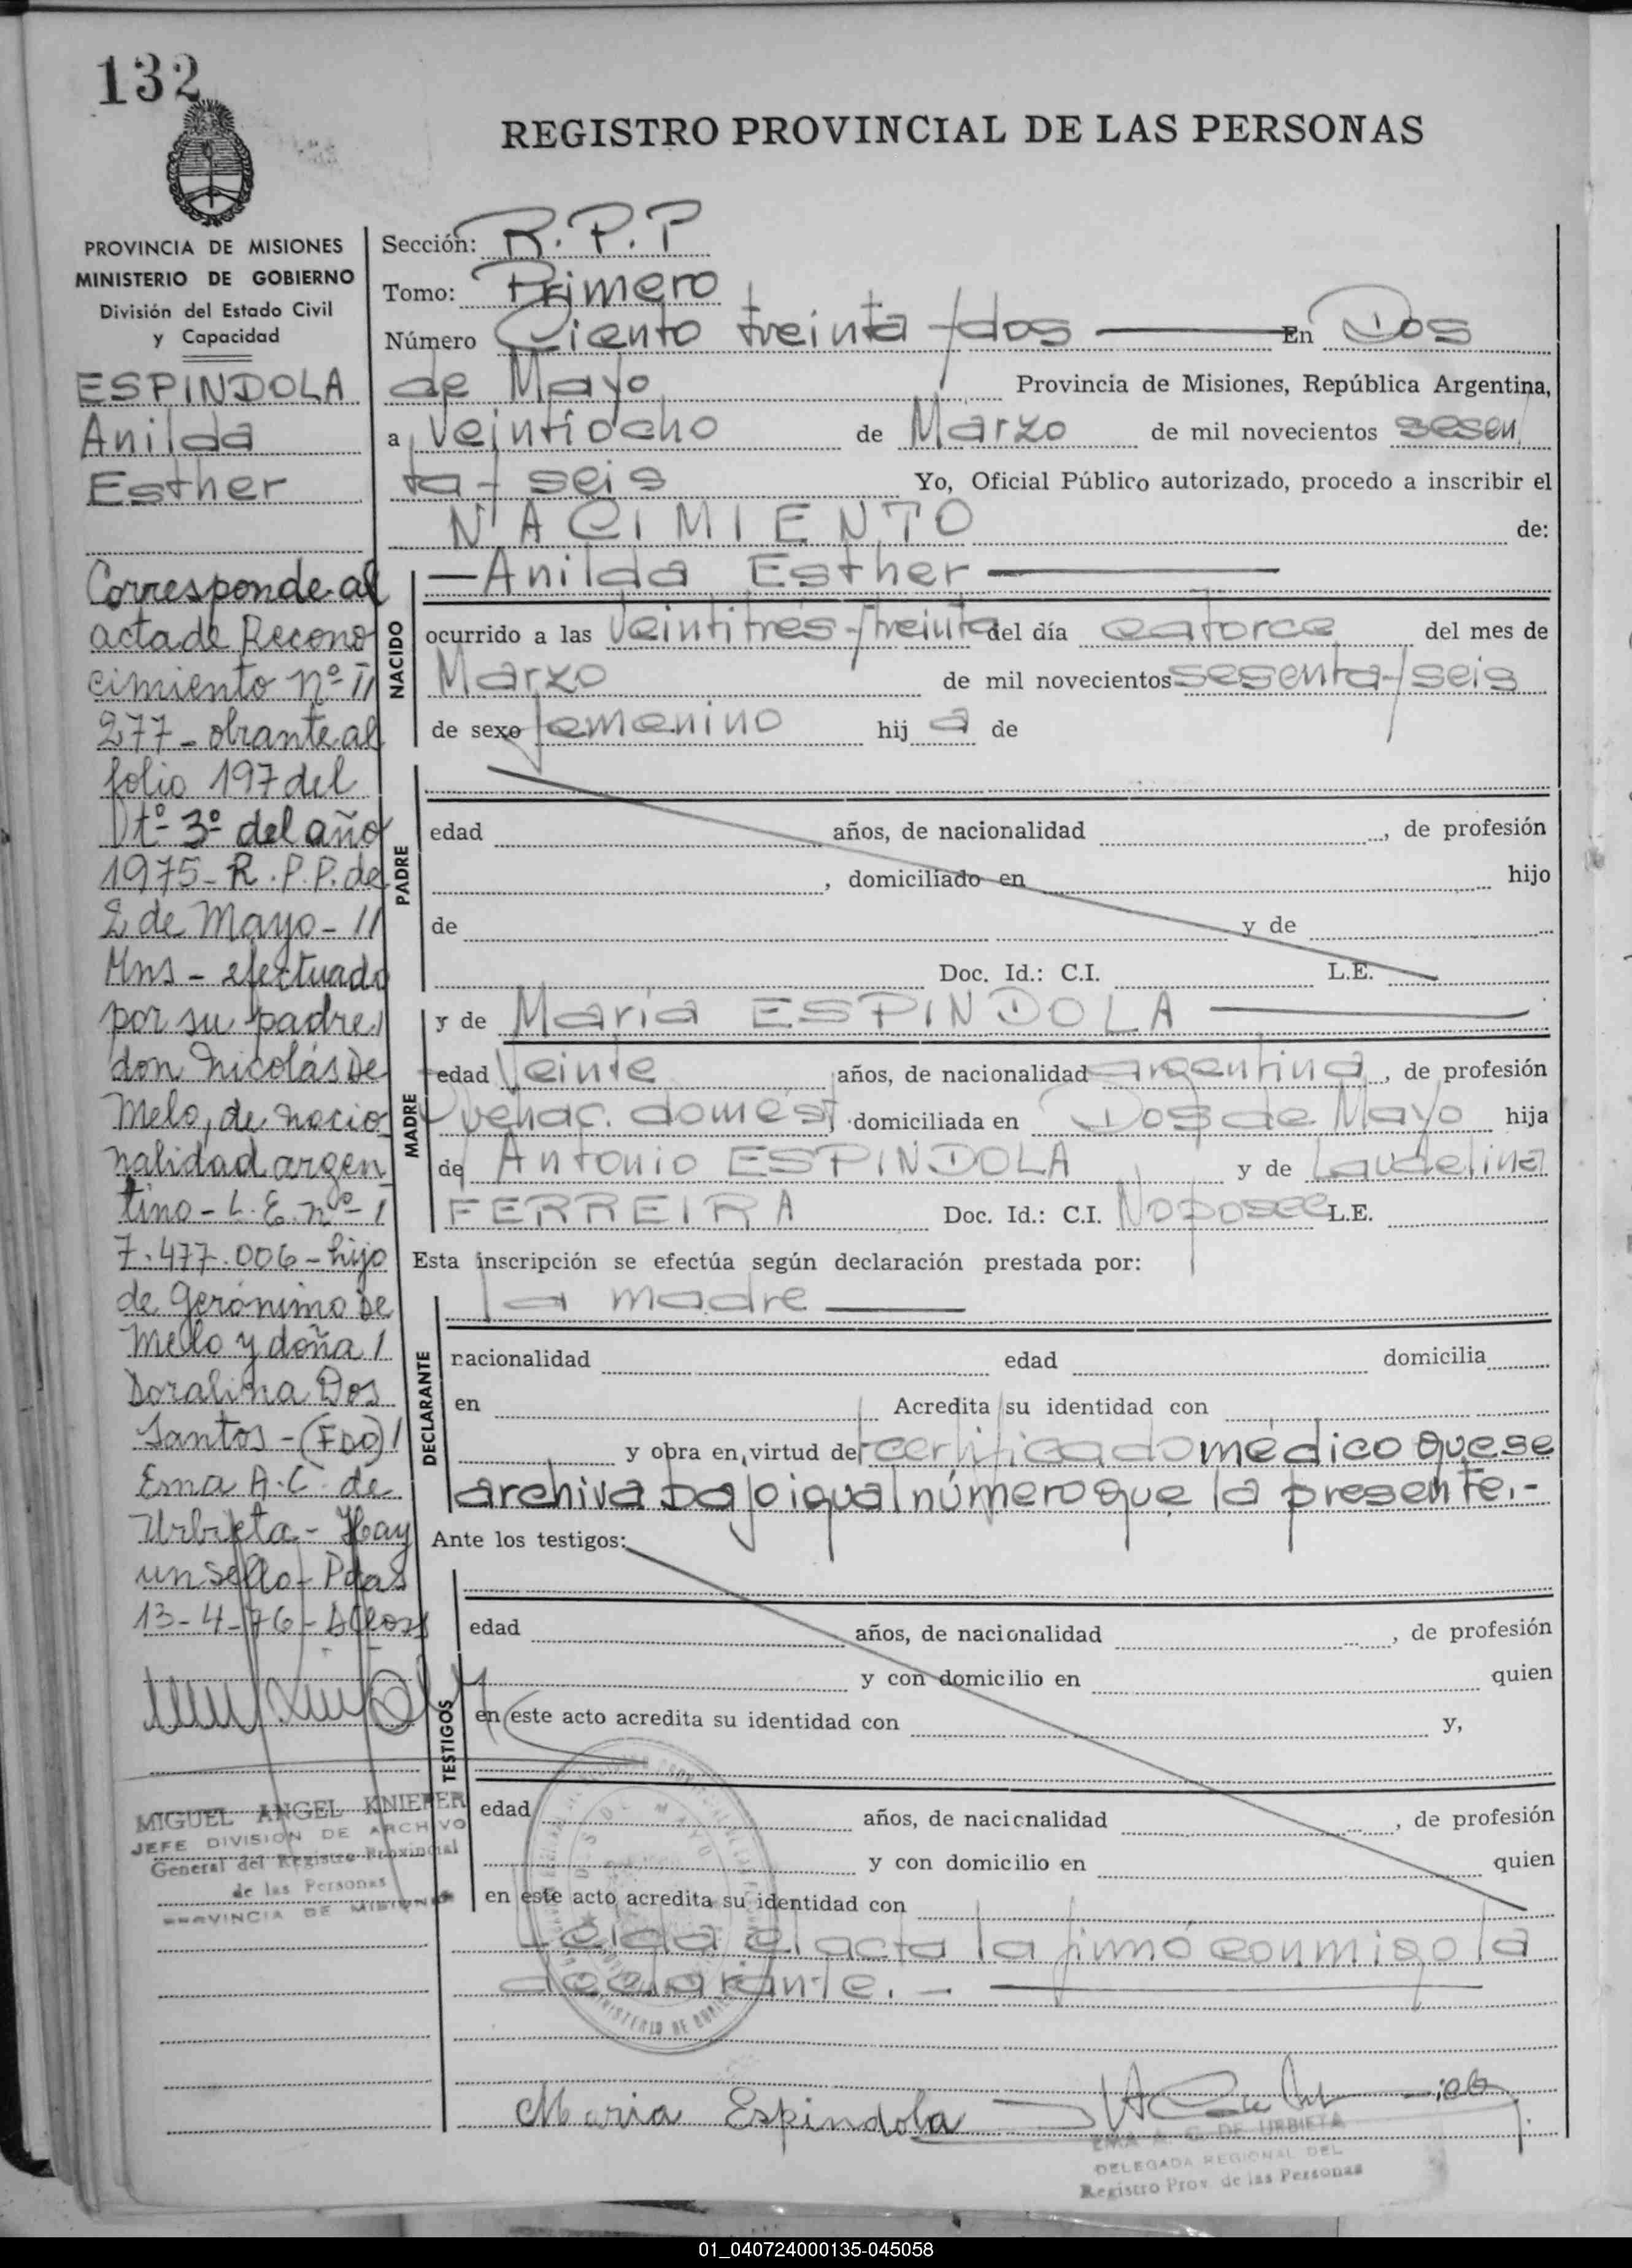 132
REGISTRO PROVINCIAL DE LAS PERSONAS
PROVINCIA DE MISIONES
MINISTERIO DE GOBIERNO
División del Estado Civil
y Capacidad
ESPINDOLA
Anilda
Esther
Corresponde al
acta de Recono
cimiento nº //
277 - obrante al
folio 197 del
Dtº 3º del año
1975 - R.P.P. de
2 de Mayo - //
Mns - efectuado
por su padre /
don Nicolás De
Melo, de nacio
nalidad argen
tino - L.E. nº /
7.477.006 - hijo
de Gerónimo De
Mello y doña /
Doralina Dos
Santos - (FDO) /
Ema A.C. de
Urbieta - Hay
un sello - Pdas
13-4-76 -
MIGUEL ANGEL KNIEPER
JEFE DIVISION DE ARCHIVO
General del Registro Provincial
de las Personas
PROVINCIA DE MISIONES
Sección: R.P.P
Tomo: Primero
Número Ciento treinta y dos En Dos
de Mayo Provincia de Misiones, República Argentina,
a Veintiocho de Marzo de mil novecientos sesen
ta y seis Yo, Oficial Público autorizado, procedo a inscribir el
NACIMIENTO de:
NACIDO
- Anilda Esther -
ocurrido a las Veintitrés y treinta del día catorce del mes de
Marzo de mil novecientos sesenta y seis
de sexo femenino hij a de
PADRE
edad años, de nacionalidad , de profesión
, domiciliado en hijo
de y de
Doc. Id.: C.I. L.E.
MADRE
y de María ESPINDOLA
edad Veinte años, de nacionalidad argentina, de profesión
Quehac. domést. domiciliada en Dos de Mayo hija
de Antonio ESPINDOLA y de Laudelina
FERREIRA Doc. Id.: C.I. No posee L.E.
Esta inscripción se efectúa según declaración prestada por:
DECLARANTE
la madre
nacionalidad edad domicilia
en Acredita su identidad con
y obra en virtud de certificado médico que se
archiva bajo igual número que la presente.-
Ante los testigos:
TESTIGOS
edad años, de nacionalidad , de profesión
y con domicilio en quien
en este acto acredita su identidad con y,
edad años, de nacionalidad , de profesión
y con domicilio en quien
en este acto acredita su identidad con
Leida el acta la firmó conmigo la
declarante. -
DOS DE MAYO
MINISTERIO DE GOBIERNO
Maria Espindola
EMA A. C. DE URBIETA
DELEGADA REGIONAL DEL
Registro Prov. de las Personas
01_040724000135-045058